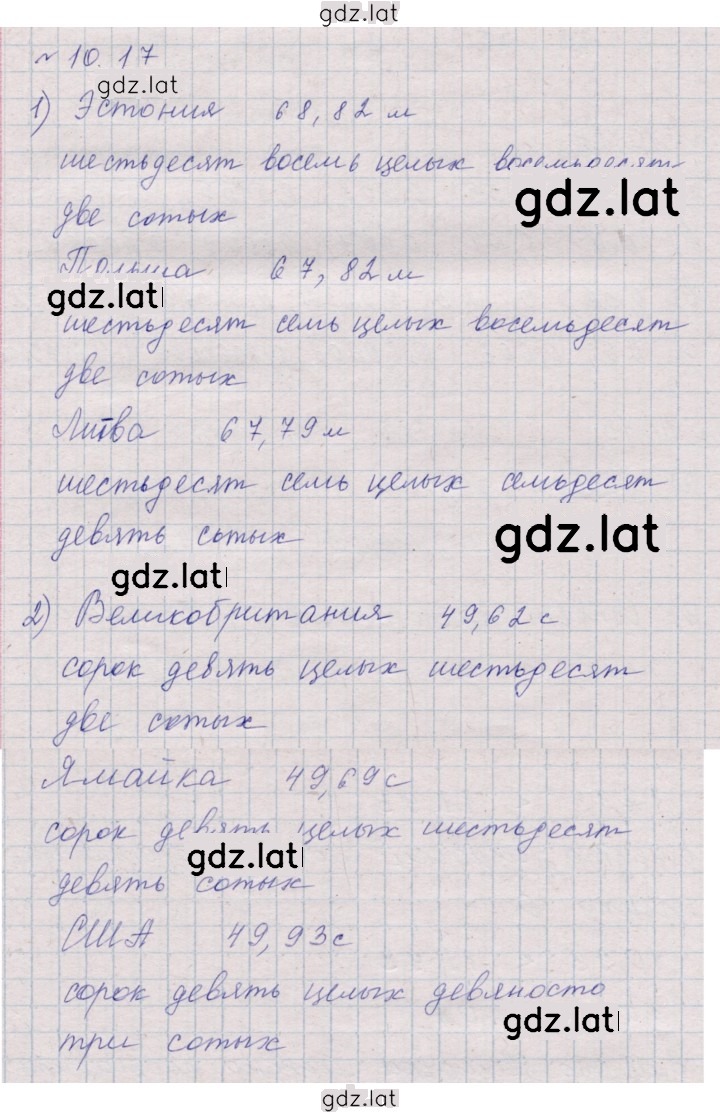 gdz.lat
№ 10.17
gdz.lat
1) Эстония 68,82 м
шестьдесят восемь целых восемьдесят
gdz.lat
две сотых
Польша 67,82 м
gdz.lat
шестьдесят семь целых восемьдесят
две сотых
Литва 67,79 м
шестьдесят семь целых семьдесят
девять сотых
gdz.lat
gdz.lat
2) Великобритания 49,62 с
сорок девять целых шестьдесят
две сотых
Ямайка 49,69 с
сорок девять целых шестьдесят
gdz.lat
девять сотых
США 49,93 с
сорок девять целых девяносто
gdz.lat
три сотых
gdz.lat